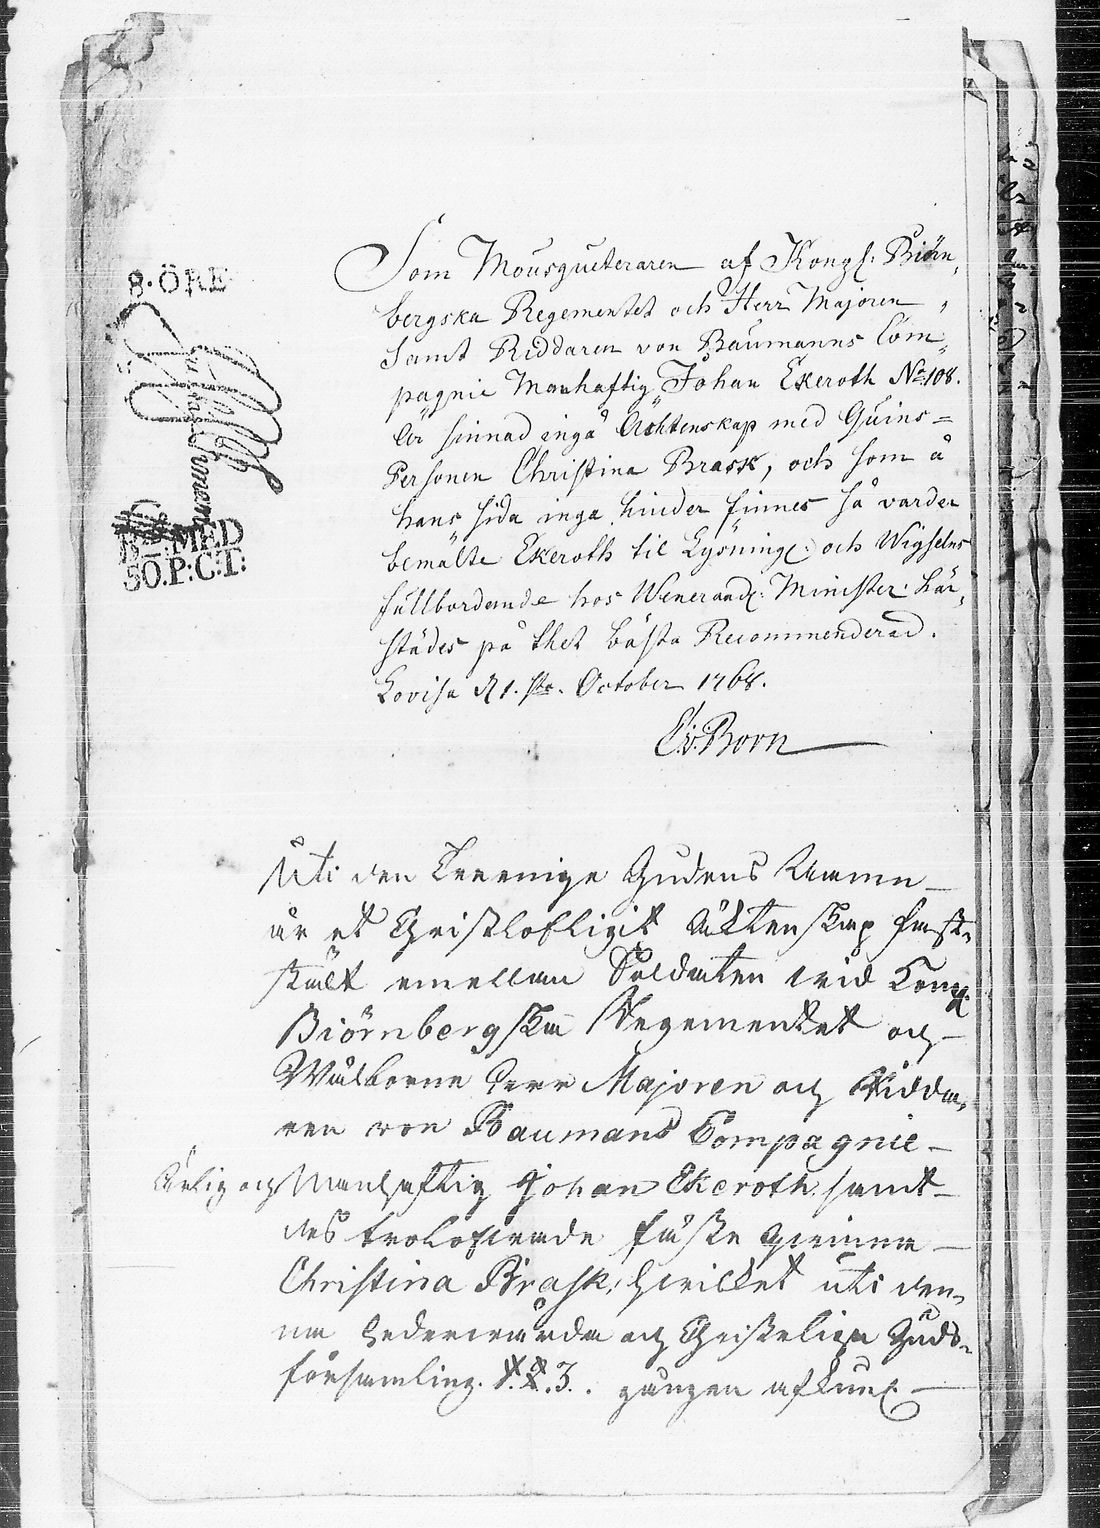 8. ÖRE
S:MED
50.P:C:T:
Som Mousqueteraren af Kongl: Biörn„
bergska Regementet och Herr Majoren
samt Riddaren von Baumanns Com„
pagnie Manhaftig Johan Ekeroth No 108.
är sinnad ingå Ächtenskap med Quins=
Personen Christina Brask, och som å
hans sida inga hinder finnes så varder
bemälte Ekeroth til Lysning: och Wigselns
fullbordande hos Wenerand: Minister: här„
städes på thet bästa Recommenderad.
Lovisa d 1. sta. October 1768.
C.v.Born
Uti den Treeniga Gudens Namn
är et Christlofligit Ächtenskap fast„
stält emellan Soldaten vid Kongl:
Biörnbergska Regementet och
Wälborne Herr Majoren och Ridda„
ren von Baumans Compagnie
Ärlig och Manhaftig Johan Ekeroth samt
des trolofvade fäste qvinna
Christina Brask, hvilket uti den„
na hedervärda och Christeliga Guds„
församling. 1.2.3. gången afkun: